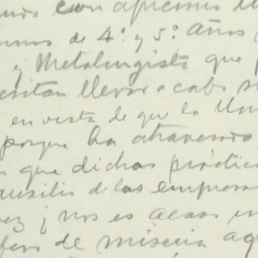 con
de 4º y 5º años
y Metalurgista que
llevar a cabo
en vista de que la Uni
porque ha atravesado
que dichas práctic
auxilio de las empresas
¿no es acaso
de miseria